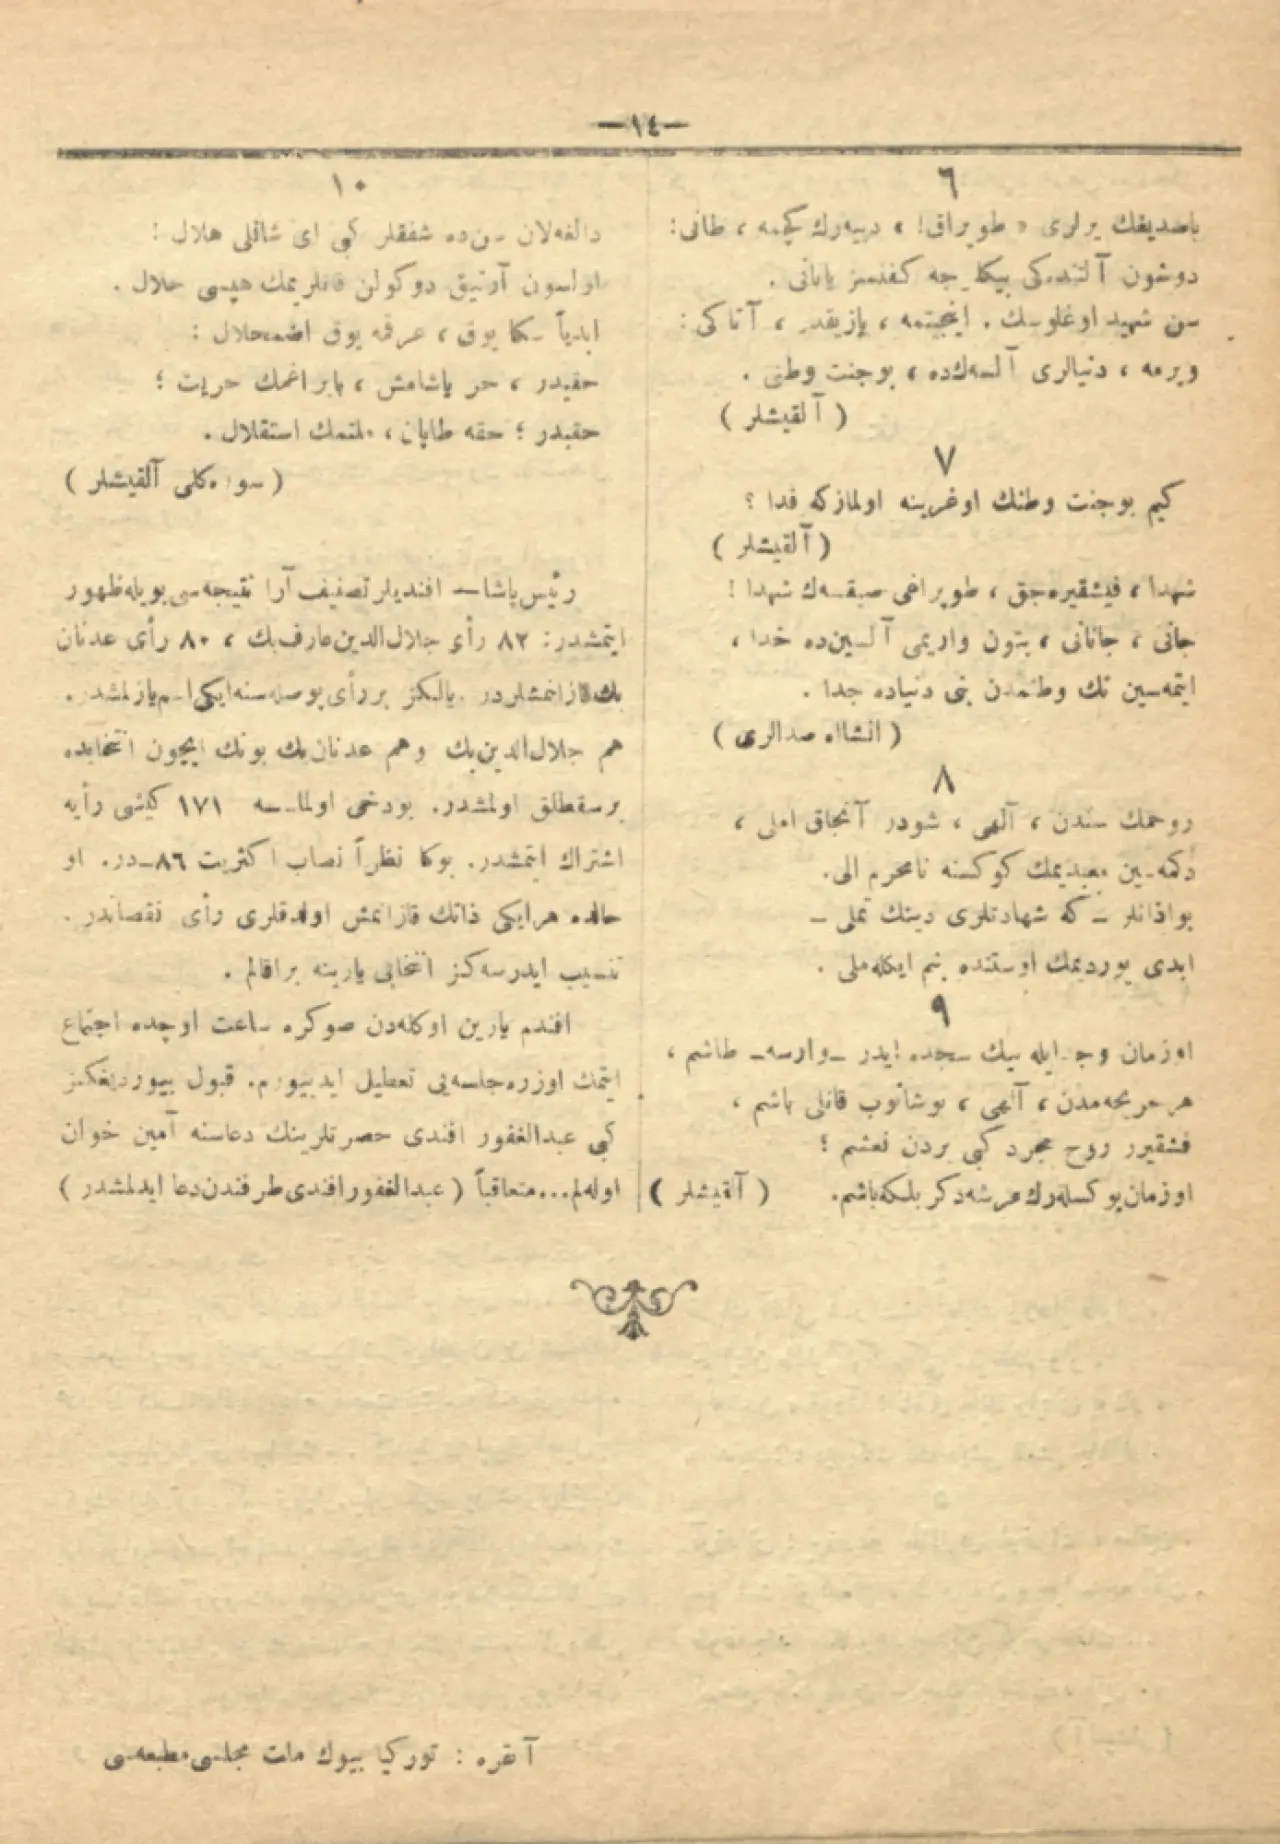 —١٤—
٦
باصديغك يرلرى « طوپراق! » دييه‌رك كچمه ، طانى:
دوشون آلتنده‌كى بيكلرجه كفنسز ياتانى .
سن شهيد اوغلوسك . اينجيتمه ، يازيقدر ، آتاكى:
ويرمه ، دنيالرى آلسه‌كده ، بوجنت وطنى .
( آلقيشلر )
٧
كيم بوجنت وطنك اوغرينه اولمازكه فدا ؟
( آلقيشلر )
شهدا ، فيشقيره‌جق ، طوپراغى صيقسه‌ك شهدا !
جانى ، جانانى ، بتون واريمى آلسين‌ده خدا ،
ايتمه‌سين تك وطنمدن بنى دنياده جدا .
( انشااه صدالرى )
٨
روحمك سندن ، آلهى ، شودر آنجاق املى ،
دكمه‌سين معبديمك كوكسنه نامحرم الى.
بواذانلر ــ كه شهادتلرى دينك تملى ــ
ابدى يورديمك اوستنده بنم ايكله‌ملى .
٩
اوزمان وجد ايله بيك سجده ايدر ــ وارسه ــ طاشم ،
هر جريحه‌مدن ، آلهى ، بوشانوب قانلى ياشم ،
فشقيرر روح مجرد كبى يردن نعشم ؛
اوزمان يوكسله‌رك عرشه دكر بلكه باشم. ( آلقيشلر )
١٠
دالغه‌لان سن‌ده شفقلر كبى اى شانلى هلال :
اولسون آرتيق دوكولن قانلريمك هپسى حلال .
ابدياً سكا يوق ، عرقمه يوق اضمحلال :
حقيدر ، حر ياشامش ، بايراغمك حريت ؛
حقيدر ؛ حقه طاپان ، ملتمك استقلال .
( سوره‌كلى آلقيشلر )
رئيس پاشا — افنديلر تصنيف آرا نتيجه‌سى بويله ظهور
ايتمشدر: ٨٢ رأى جلال‌الدين عارف بك ، ٨٠ رأى عدنان
بك قازانمشلردر . يالكز بررأى پوصله‌سنه ايكى اسم يازلمشدر .
هم جلال‌الدين بك وهم عدنان بك بونك ايچون انتخابده
برسقطلق اولمشدر. بودخى اولماسه ١٧١ كيشى رأيه
اشتراك ايتمشدر. بوكا نظراً نصاب اكثريت ٨٦ـدر. او
حالده هرايكى ذاتك قازانمش اولدقلرى رأى نقصاندر .
تنسيب ايدرسه‌كز انتخابى يارينه براقالم .
افندم يارين اوكله‌دن صوكره ساعت اوچده اجتماع
ايتمك اوزره جلسه‌يى تعطيل ايدييورم. قبول بيورديغكز
كبى عبدالغفور افندى حضرتلرينك دعاسنه آمين خوان
اوله‌لم... متعاقباً ( عبدالغفور افندى طرفندن دعا ايدلمشدر )
آنقره : توركيا بيوك ملت مجلسى مطبعه‌سى